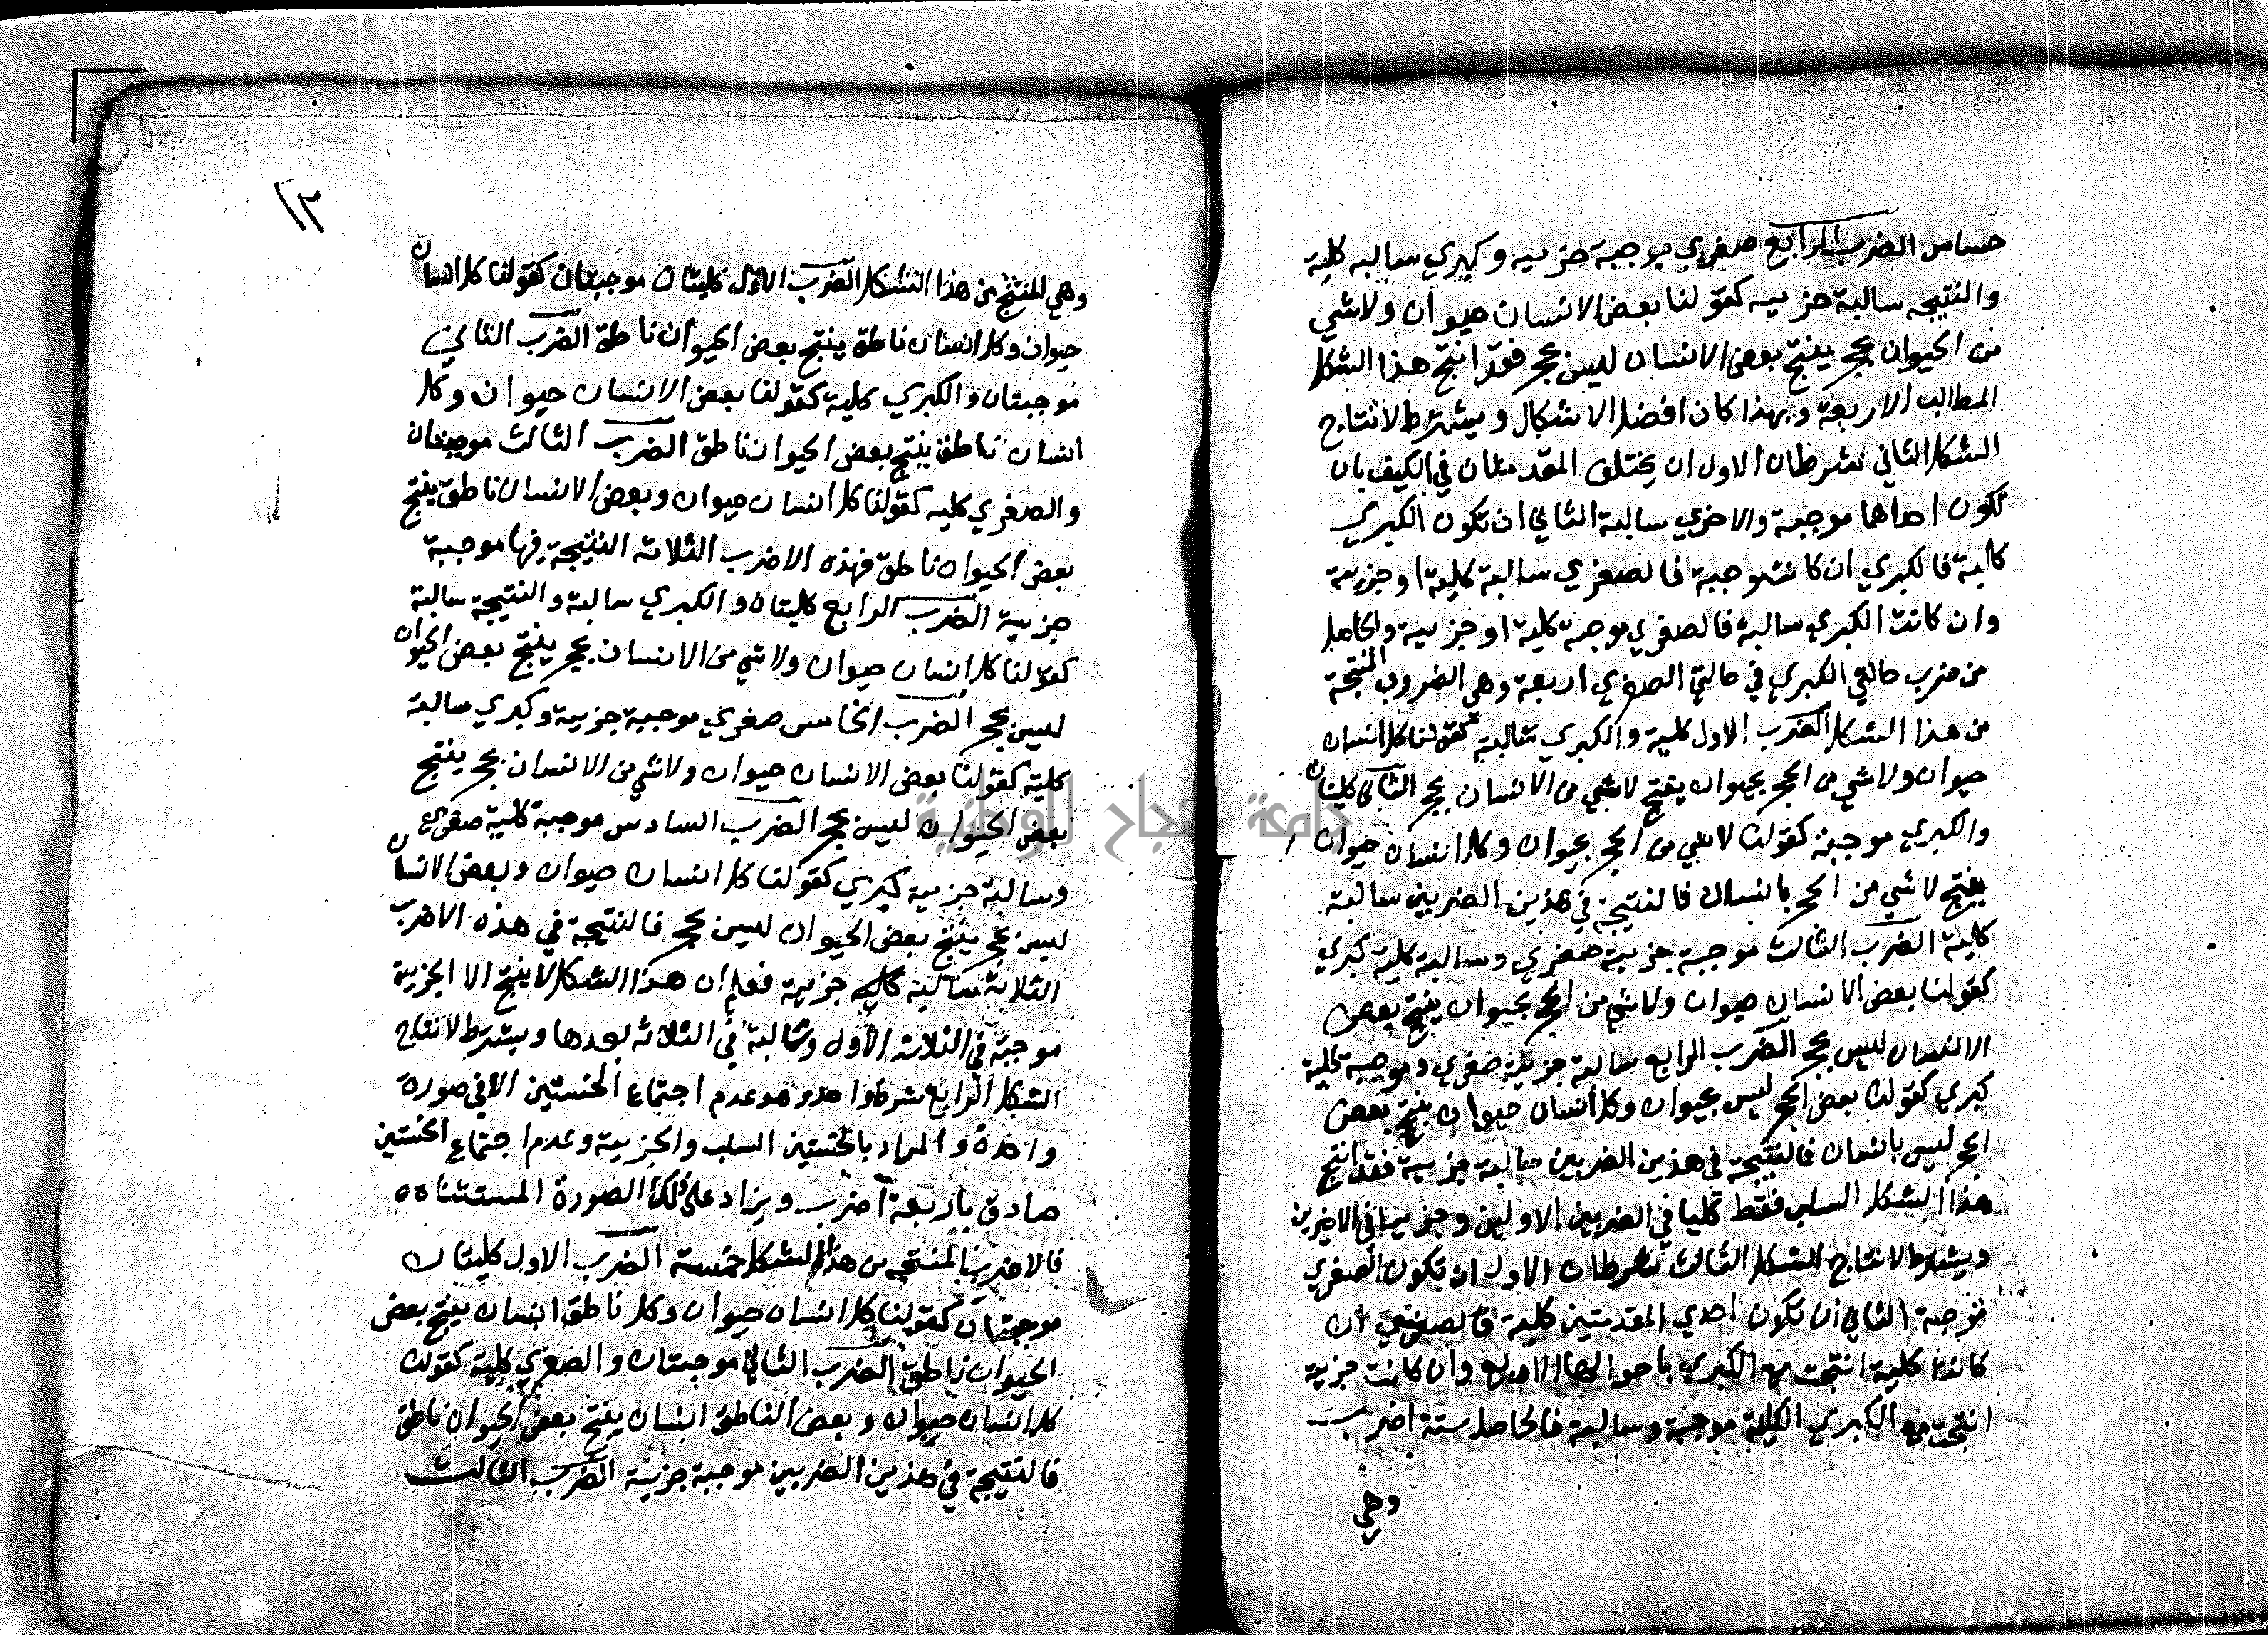 حساس الضرب الرابع صغري موجبة جزييه وكبري سالبه كلية
والنتيجه سالبة جزييه كقولنا بعض الانسان حيوان ولاشي
من الحيوان بحجر ينتج بعض الانسان ليس بحجر فقد انتج هذا الشكل
المطالب الاربعة وبهذا كان افضل الاشكال ويشترط لانتاج
الشكل الثاني شرطان الاول ان يختلف المقدمتان في الكيف بان
تكون احداهما موجبة والاخري سالبة الثاني ان تكون الكبري
كلية فالكبري ان كانت موجبة فالصغري سالبة كلية او جزيية
وان كانت الكبري سالبة فالصغري موجبة كلية او جزيية والحاصل
من ضرب حالتي الكبري في حالتي الصغري اربعة وهي الضروب المنتجة
من هذا الشكل الضرب الاول كلية والكبري سالبة كقولنا كل انسان
حيوان ولاشي من الحجر بحيوان ينتج لاشي من الانسان بحجر الثاني كليتان
والكبري موجبة كقولنا لاشي من الحجر بحيوان وكل انسان حيوان
ينتج لاشي من الحجر بانسان فالنتيجة في هذين الضربين سالبة
كلية الضرب الثالث موجبة جزيية صغري وسالبة كلية كبري
كقولنا بعض الانسان حيوان ولاشي من الحجر بحيوان ينتج بعض
الانسان ليس بحجر الضرب الرابع سالبة جزيية صغري وموجبة كلية
كبري كقولنا بعض الحجر ليس بحيوان وكل انسان حيوان ينتج بعض
الحجر ليس بانسان فالنتيجة في هذين الضربين سالبة جزيية فقد انتج
هذا الشكل السلب فقط كليا في الضربين الاولين وجزييا في الاخرين
ويشترط لانتاج الشكل الثالث شرطان الاول ان تكون الصغري
موجبة الثاني ان تكون احدي المقدمتين كلية فالصغري ان
كانت كلية انتجت مع الكبري باحوالها الاربع وان كانت جزيية
انتجت مع الكبري الكلية موجبة وسالبة فالحاصل ستة اضرب
وهي
١٣
وهي المنتج من هذا الشكل الضرب الاول كليتان موجبتان كقولنا كل انسان
حيوان وكل انسان ناطق ينتج بعض الحيوان ناطق الضرب الثاني
موجبتان والكبري كلية كقولنا بعض الانسان حيوان وكل
انسان ناطق ينتج بعض الحيوان ناطق الضرب الثالث موجبتان
والصغري كليه كقولنا كل انسان حيوان وبعض الانسان ناطق ينتج
بعض الحيوان ناطق فهذه الاضرب الثلاثة النتيجة فيها موجبة
جزيية الضرب الرابع كليتان والكبري سالبة والنتيجة سالبة
كقولنا كل انسان حيوان ولاشي من الانسان بحجر ينتج بعض الحيوان
ليس بحجر الضرب الخامس صغري موجبة جزيية وكبري سالبة
كلية كقولنا بعض الانسان حيوان ولاشي من الانسان بحجر ينتج
بعض الحيوان ليس بحجر الضرب السادس موجبة كلية صغري
وسالبة جزيية كبري كقولنا كل انسان حيوان وبعض الانسان
ليس بحجر ينتج بعض الحيوان ليس بحجر فالنتيجة في هذه الاضرب
الثلاثة سالبة جزيية فعلم ان هذا الشكل لا ينتج الا الجزيية
موجبة في الثلاثة الاول وسالبة في الثلاثة بعدها ويشترط لانتاج
الشكل الرابع شرط واحد وهو عدم اجتماع الخستين الا في صورة
واحدة والمراد بالخستين السلب والجزيية وعدم اجتماع الخستين
صادق باربعة اضرب ويزاد علي ذلك الصورة المستثناه
فالاضرب المنتجه من هذا الشكل خمسة الضرب الاول كليتان
موجبتان كقولنا كل انسان حيوان وكل ناطق انسان ينتج بعض
الحيوان ناطق الضرب الثاني موجبتان والصغري كلية كقولنا
كل انسان حيوان وبعض الناطق انسان ينتج بعض الحيوان ناطق
فالنتيجة في هذين الضربين موجبة جزيية الضرب الثالث
جامعة النجاح الوطنية